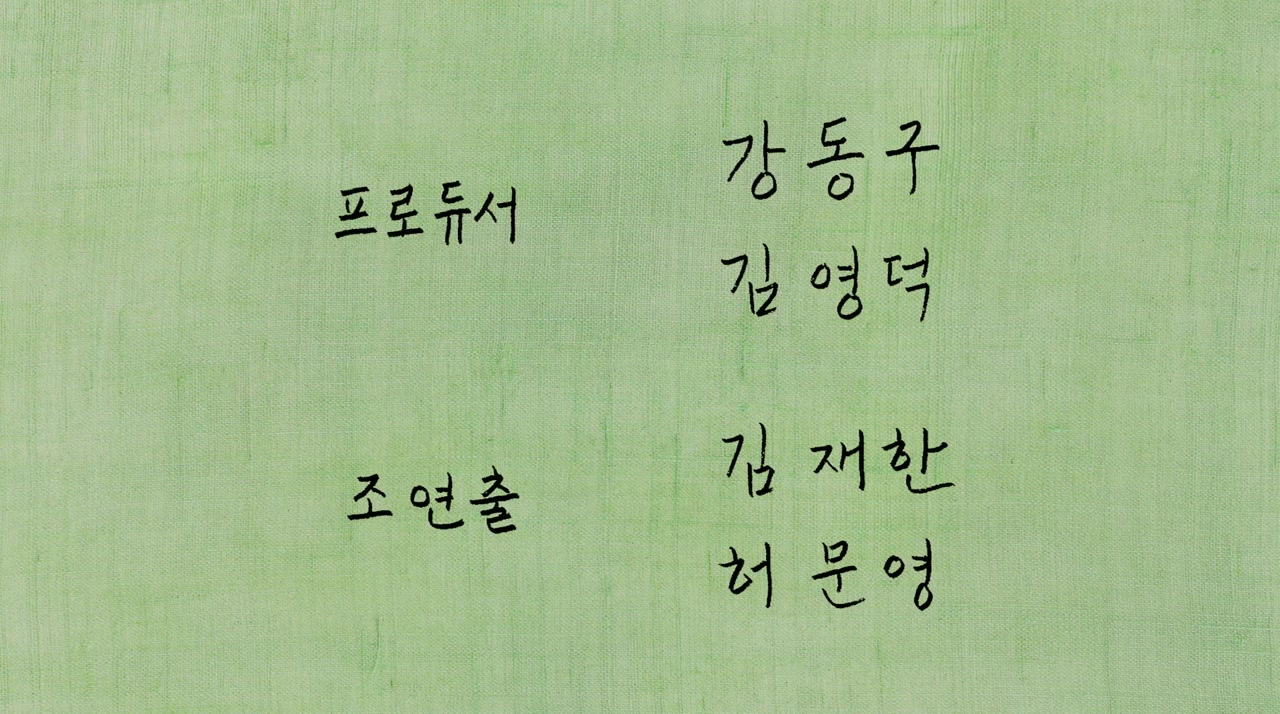 프로듀서
강동구
김영덕
조연출
김재한
허문영